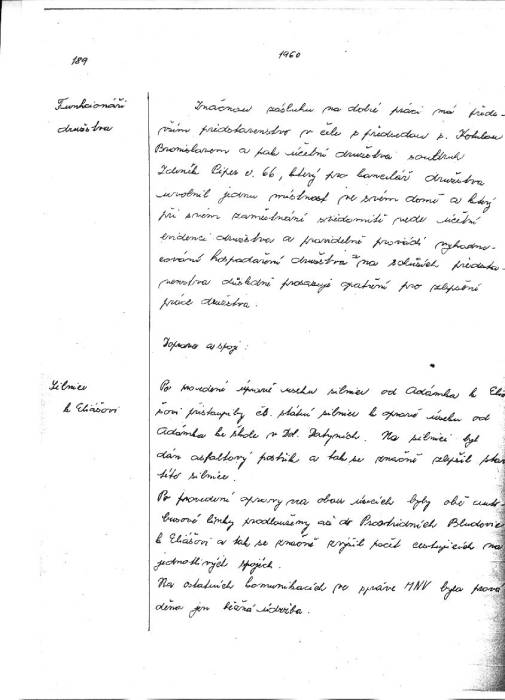 189
1960
Funkcionáři
družstva
Značnou zásluhu na dobré práci má přede-
vším představenstvo v čele s předsedou s.
Bronislavem a pak účetní družstva soudruh
Zdeněk Pipes č. 66, který pro kancelář družstva
uvolnil jednu místnost ve svém domě a který
při svém zaměstnání svědomitě vede účetní
evidenci družstva a pravidelně provádí vyhodno-
cování hospodaření družstva na schůzích předsta-
venstva důsledně prosazuje opatření pro zlepšení
práce družstva.
Doprava a spoje:
Silnice
k Eliášovi
Po provedené úpravě úseku silnice od Adámka k Eliá
šovi přistoupily čs. státní silnice k opravě úseku od
Adámka ke škole v Dol. Datyních. Na silnici byl
dán asfaltový postřik a tak se značně zlepšil stav
této silnice.
Po provedení opravy na obou úsecích byly obě auto-
busové linky prodlouženy až do Prostředních Bludovic
k Eliášovi a tak se značně zvýšil počet cestujících na
jednotlivých spojích.
Na ostatních komunikacích ve správě MNV byla prová
děna jen běžná údržba.